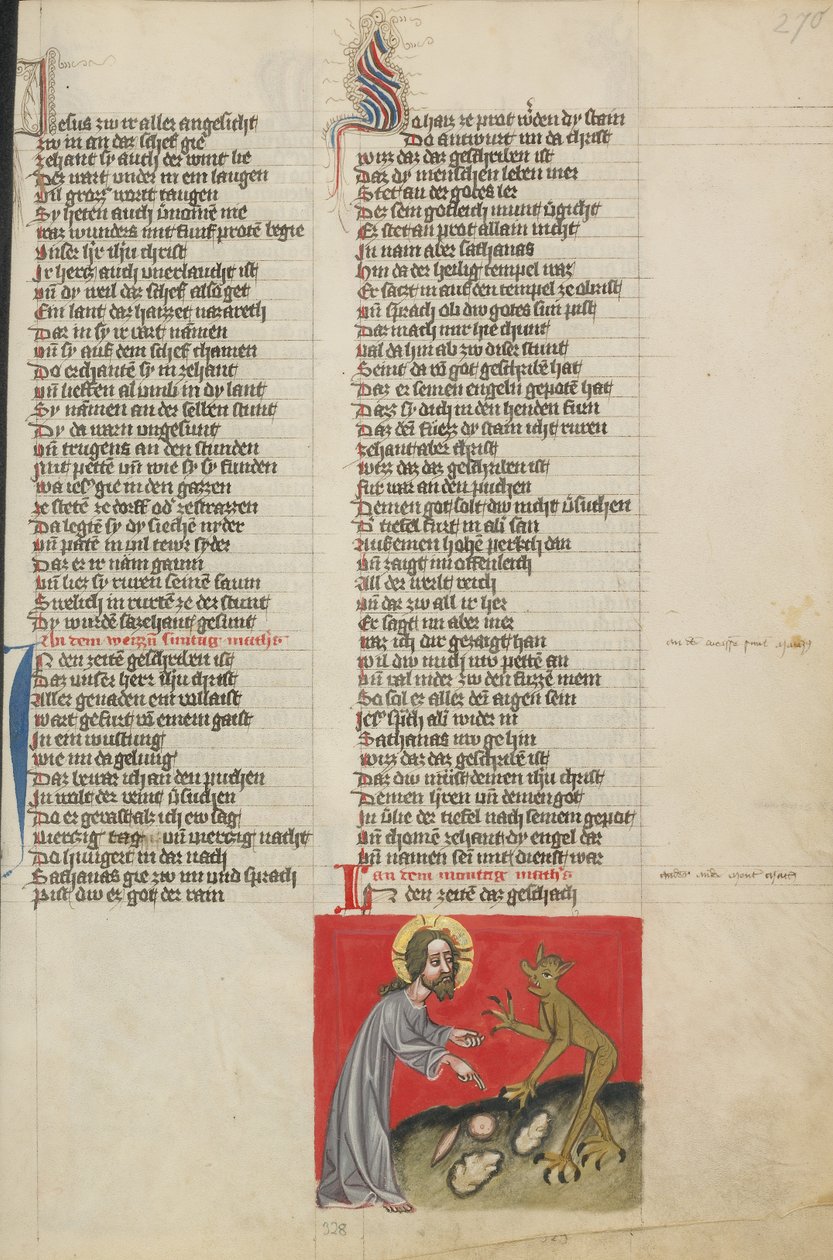 270
Jesus zw ir aller angesicht
zw in an daz schef gie
zehant sy auch der wint lie
Der wart under in em taugen
Vil groz wort taugen
Sy heten auch v̄nomē nie
waz wunders mit funf protē begie
Unser h̄r ih̄u christ
Ir hercz auch unerlaucht ist
un̄ dy weil daz schef also get
Ein lant daz haizzet nazareth
Daz in sy ir vart namen
un̄ sy auf dem schef chamen
Do erchantē sy in zehant
un̄ lieffen al umb in dy lant
Sy namen an der selben stunt
Dy da warn ungesunt
un̄ trugens an den stunden
Mit pettē un̄ wie sy sy funden
wa ies9 gie in den gazzen
ze stetē ze dorff od̾ ze strazzen
Da legtē sy dy siechē nyder
un̄ patē in vil tewr syder
Daz er ir nam gaum
un̄ liez sy ruren seinē saum
Swelich in rurtē ze der stunt
Dy wurdē sazehant gesunt
An dem weizzn̄ suntag matheꝰ
In den zeitē geschriben ist
Daz unser herr ih̄u christ
Aller genaden ein vollaist
wart gefurt vō einem gaist
In ein wustung
wie im da gelung
Daz bewar ich an den puchen
In wolt der veint v̄suchen
Do er gevast als ich ew sag
vierczig tag un̄ vierczig nacht
Do hungert in dar nach
Sathanas gie zw im und sprach
Pist dw er got der rain
So haiz ze prot w̾den dy stain
Do antwurt im da christ
wizz daz daz geschriben ist
Daz dy menschen leben mer
Stet an der gotes ler
Der sein gotleich munt v̄gicht
Er stet an prot allain nicht
In nam aber sathanas
Hin da der heilig tempel waz
Er saczt in auf den tempel ze obrist
un̄ sprach ob dw gotes sun pist
Daz mach mir hie chunt
val da hin ab zw diser stunt
Seint da vō got geschribē hat
Daz er seinen engeln gepotē hat
Daz sy dich in den henden furn
Daz dein fuezz dy stain icht ruren
zehant aber christ
wizz daz daz geschriben ist
fur war an den puchen
Deinen got solt dw nicht v̄suchen
D̾ tiefel furt in ab̾ san
Auf einen hohē perkch dan
un̄ zaigt im offenleich
All der werlt reich
un̄ daz zw all ir her
Er sagt im aber mer
waz ich dir gezaigt han
wil dw mich nw pettē an
un̄ val nider zw den fuzzē mein
So sol er aller dein aigen sein
Ies9 sp̄ch ab̾ wider in
Sathanas nw ge hin
wizz daz daz geschribē ist
Daz dw must deinen ih̄u christ
Deinen h̾ren un̄ deinen got
In v̄lie der tiefel nach seinem gepot
un̄ chomē zehant dy engel dar
un̄ namen sein mit dienst war
an dem montag matheꝰ
In den zeitē daz geschach
328